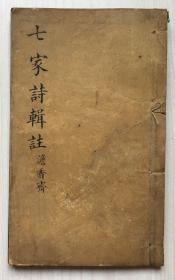 七家詩輯註
澹香齋